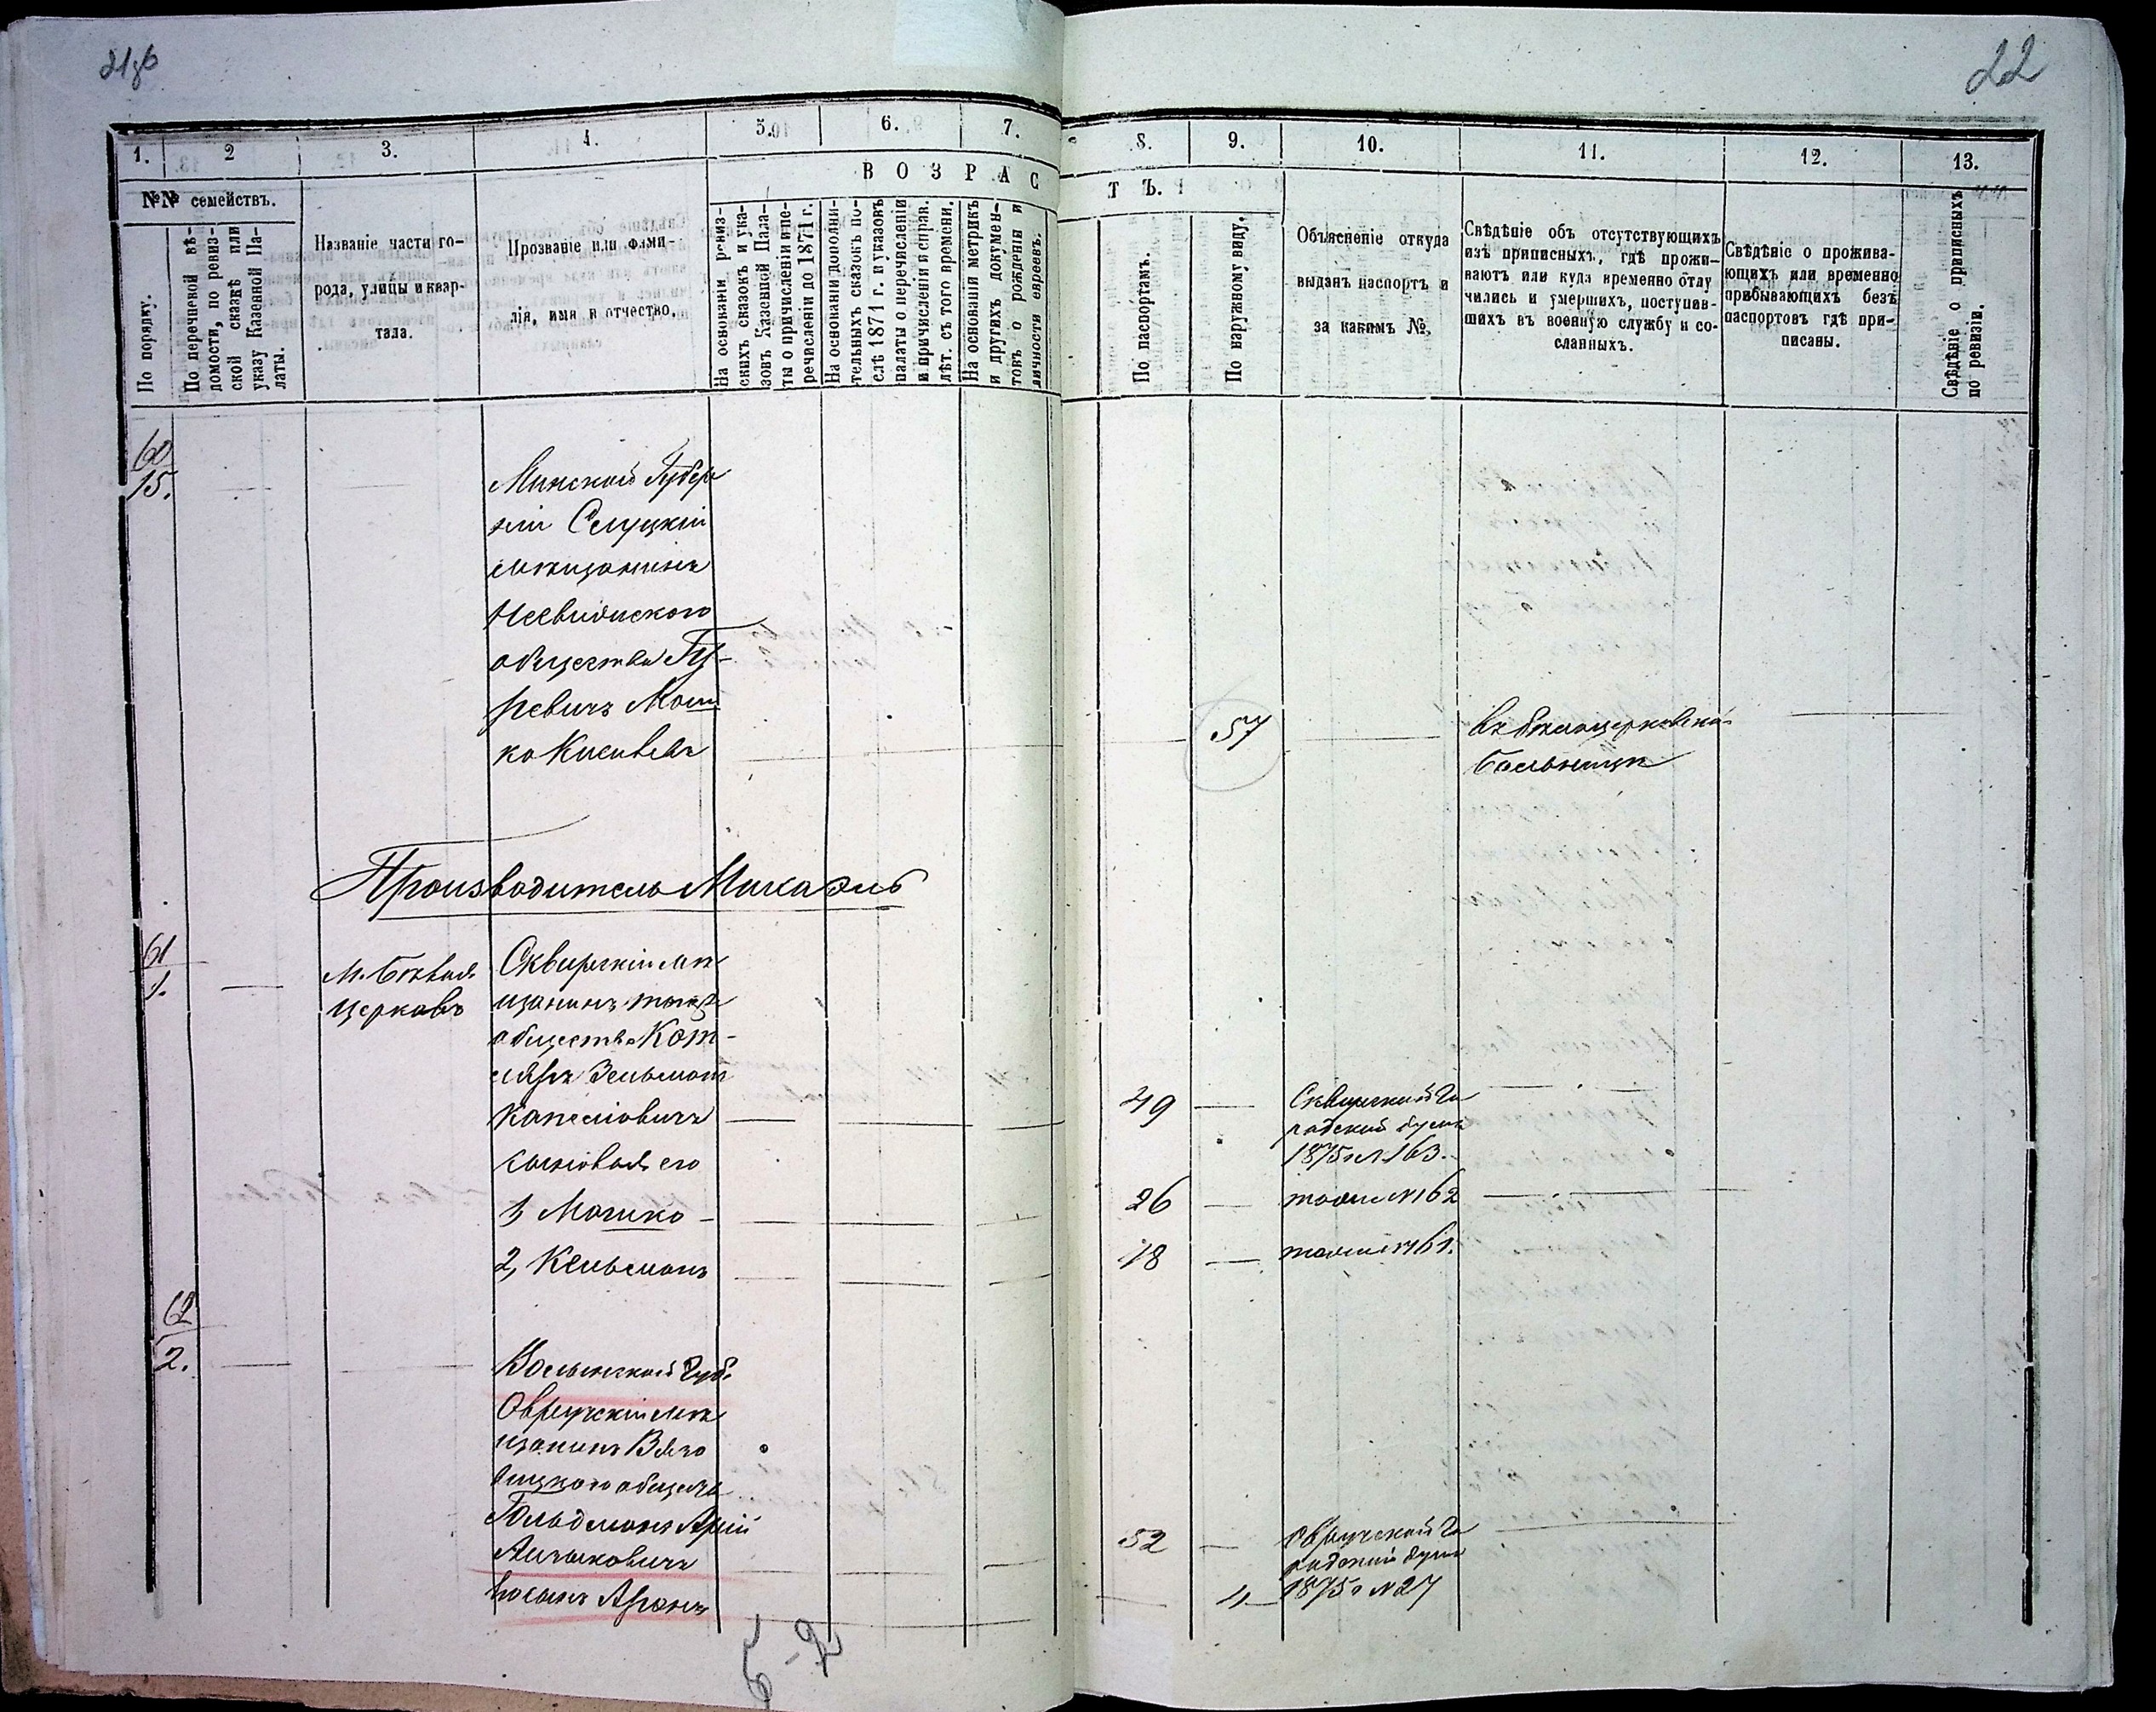 22
1. 2 3. 4. 5. 6. 7. 8. 9. 10. 11. 12. 13.
№№ семействъ.
ВОЗРАСТЪ.
По порядку.
По перечневой вѣ-
домости, по ревиз-
ской сказкѣ или
указу Казенной Па-
латы.
Названіе части го-
рода, улицы и квар-
тала.
Прозваніе или фами-
лія, имя и отчество.
На основаніи ревиз-
скихъ сказокъ и ука-
зовъ Казенной Пала-
ты о причисленіи и пе-
речисленіи до 1871 г.
На основаніи дополни-
тельныхъ сказокъ по-
слѣ 1871 г. и указовъ
палаты о перечисленіи
и причисленіи и справ.
лѣт. съ того времени.
На основаніи метрикъ
и другихъ докумен-
товъ о рожденіи и
личности евреевъ.
По паспортамъ.
По наружному виду.
Объясненіе откуда
выданъ паспортъ и
за какимъ №.
Свѣдѣніе объ отсутствующихъ
изъ приписныхъ, гдѣ прожи-
ваютъ или куда временно отлу
чились и умершихъ, поступив-
шихъ въ военную службу и со-
сланныхъ.
Свѣдѣніе о прожива-
ющихъ или временно
прибывающихъ безъ
паспортовъ гдѣ при-
писаны.
Свѣдѣніе о приписныхъ
по ревизіи.
60
15.
Минской Губер
ніи Слуцкій
мѣщанинъ
общества Гу-
ревичъ Мош
ко
57
Въ бѣлоцерковской
больницѣ
Производитель Микаэль
61
1.
М. Бѣлая
Церковь
Сквирскій мѣ
щанинъ того же
общества Кот-
ляръ Зельман
Капелiовичъ
49
Сквирской Го
родской думы
1875 г. № 163.
сыновья его
1, Мошко
26
тоже № 162
2, Кельманъ
18
тоже № 161.
62
2.
Волынской Губ.
Овручскій мѣ
щанинъ
общества
Гольдманъ Арій
Айзиковичъ
52
Овручской Го
родской думы
1875 г. № 27
Аронъ
11
5-2